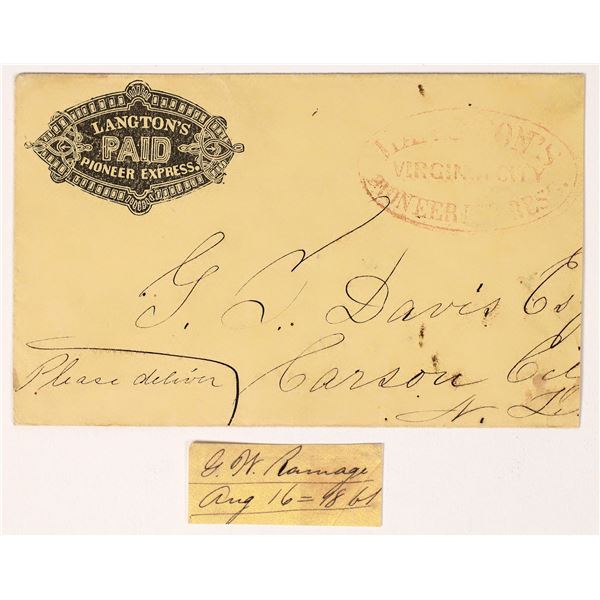 LANGTON'S
PAID
PIONEER EXPRESS.
LANGTON'S
VIRGINIA CITY
PIONEER EXPRESS.
G. T. Davis Es
Please deliver Carson Cit
N. T.
G. W. Ramage
Aug 16 = 1861